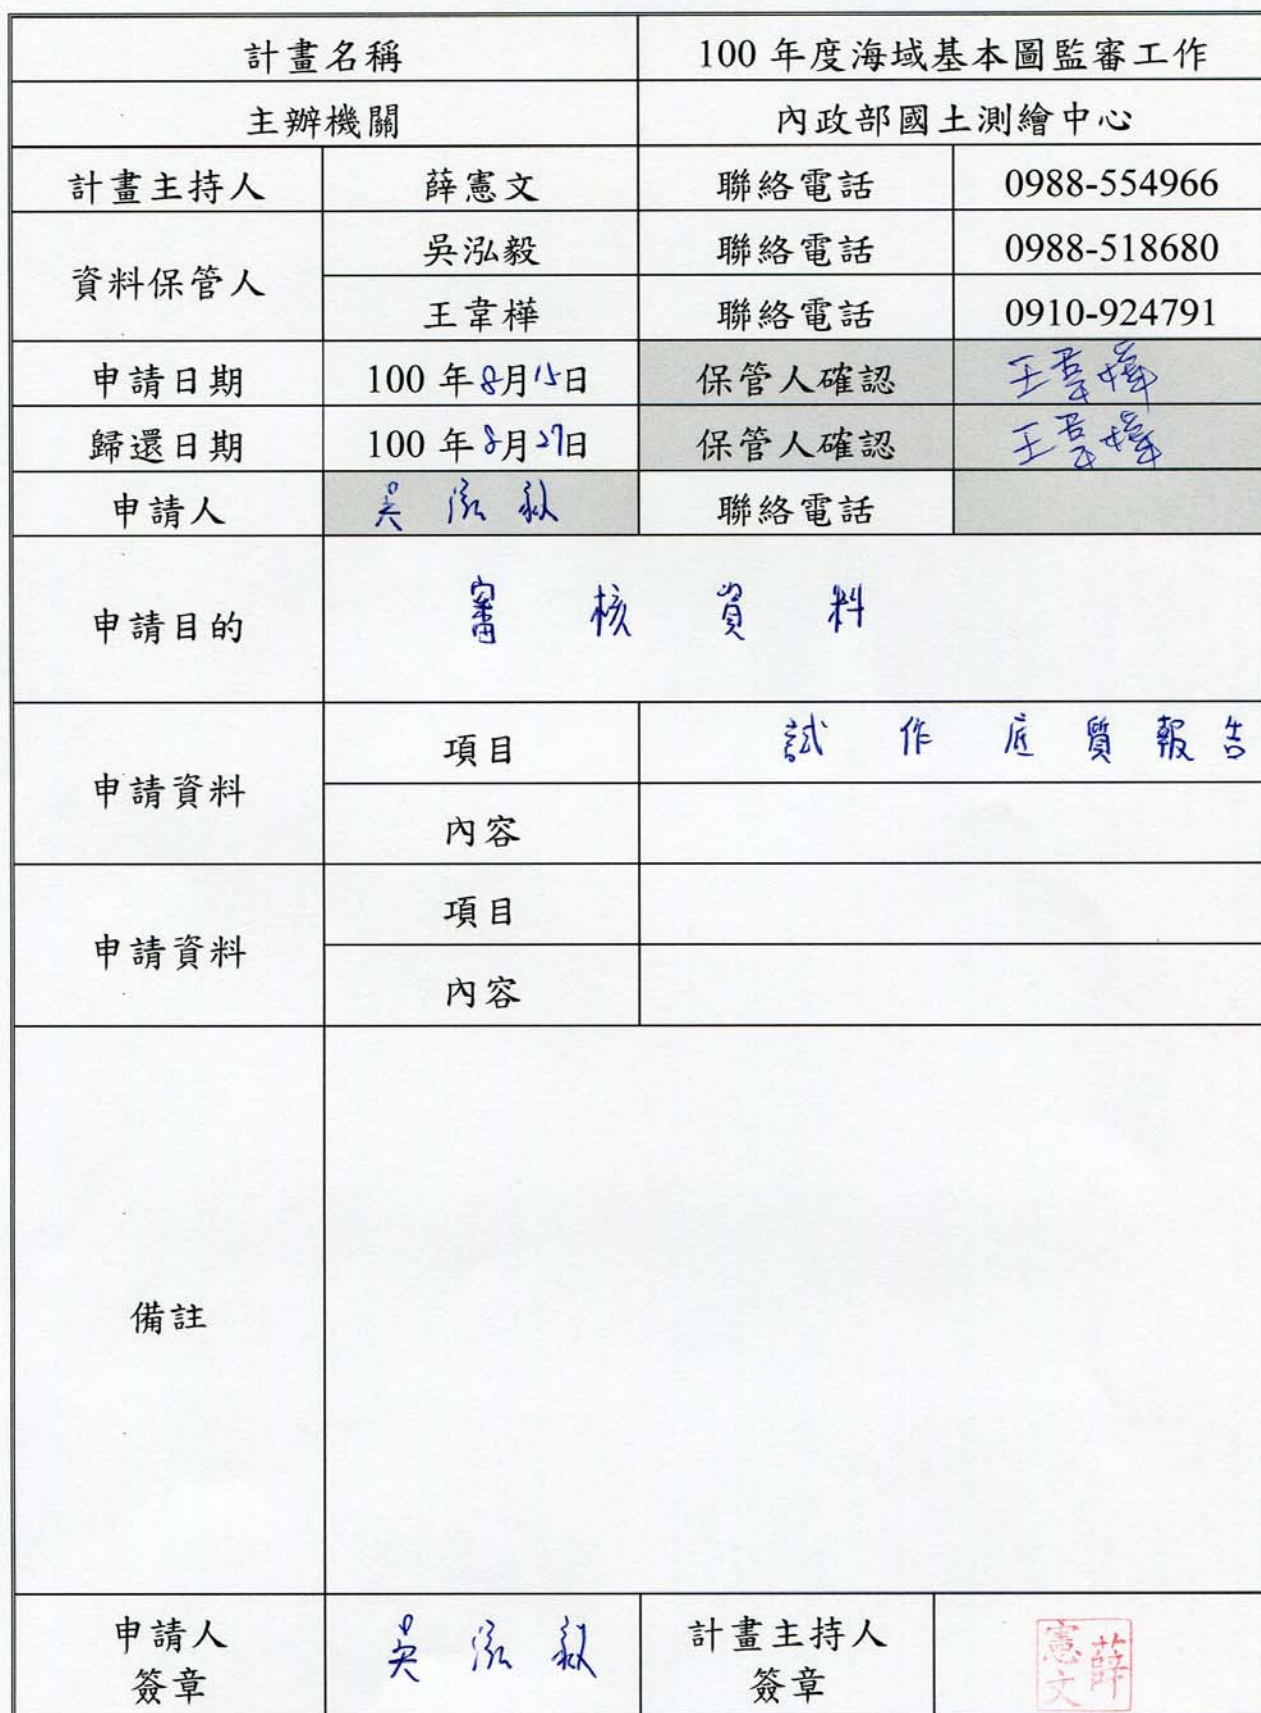 計畫名稱 100 年度海域基本圖監審工作
主辦機關 內政部國土測繪中心
計畫主持人 薛憲文 聯絡電話 0988-554966
資料保管人 吳泓毅 聯絡電話 0988-518680
王韋樺 聯絡電話 0910-924791
申請日期 100 年8月15日 保管人確認 王韋樺
歸還日期 100 年8月27日 保管人確認 王韋樺
申請人 吳泓毅 聯絡電話
申請目的 審核資料
申請資料 項目 試作底質報告
內容
申請資料 項目
內容
備註
申請人 吳泓毅 計畫主持人 薛憲文
簽章 簽章